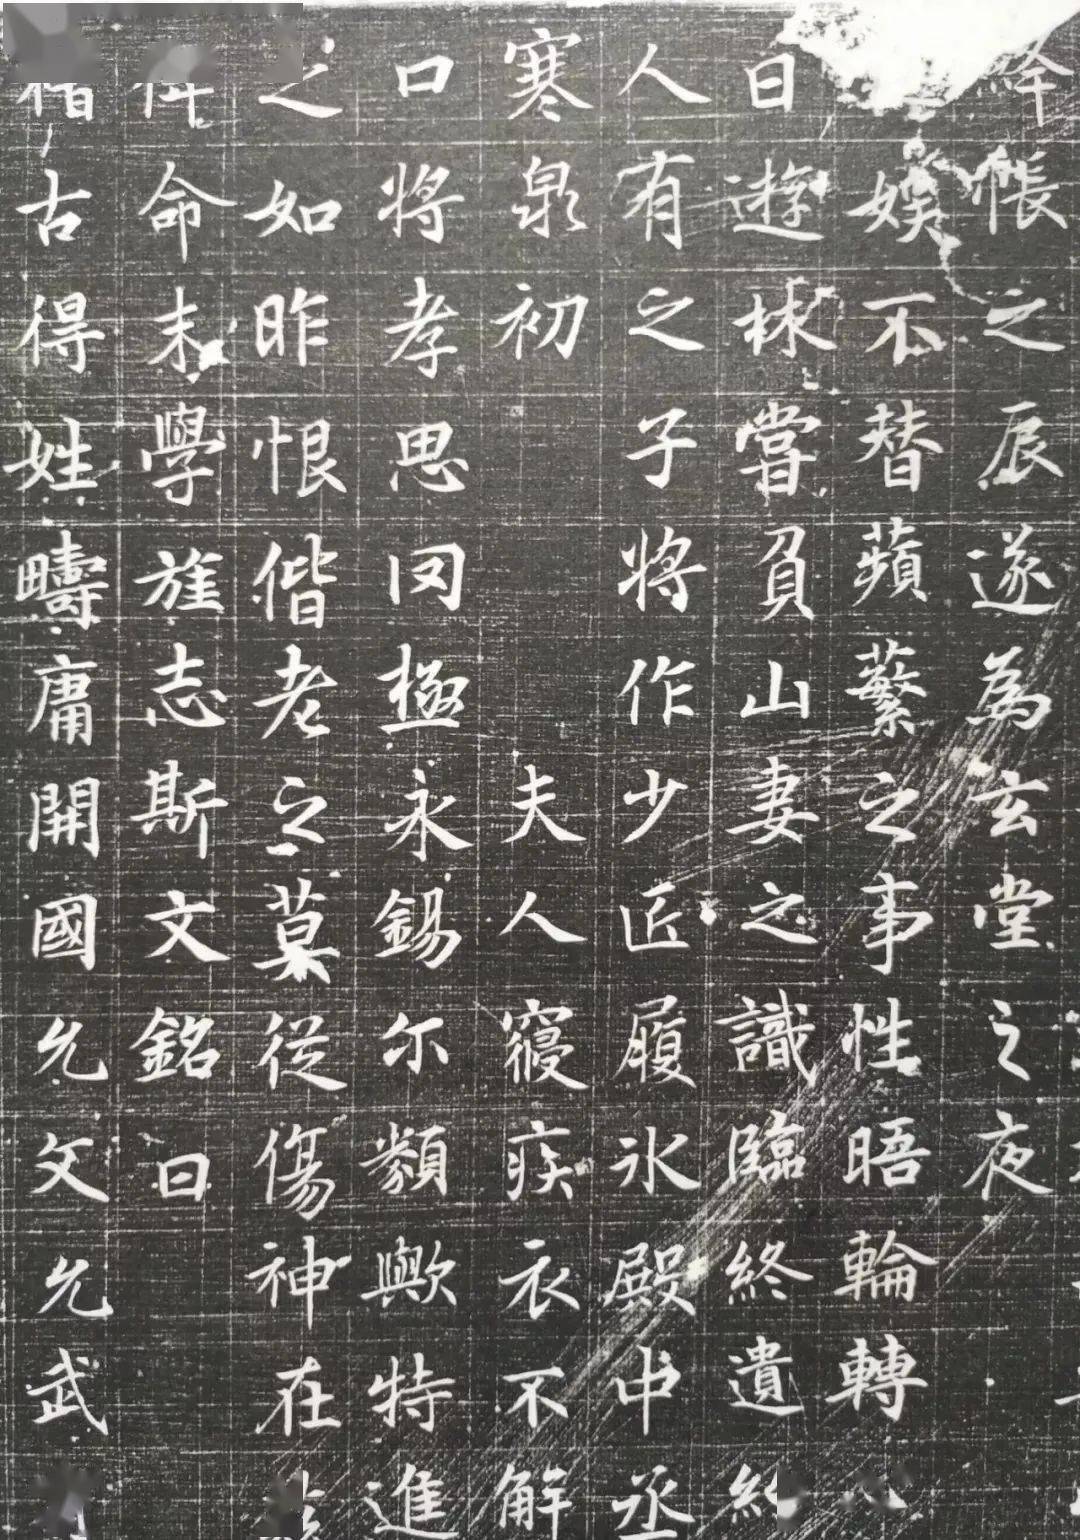 絳帳之辰遂為玄堂之夜
娛不替蘋蘩之事性晤輪轉
日遊梂嘗負山妻之識臨終遺
人有之子將作少匠履氷殿中丞
寒泉初 夫人寢疾衣不解
口將孝思罔極永錫尔類歟特進
之如昨恨偕老之莫從傷神在
命末學旌志斯文銘曰
稽古得姓疇庸開國允文允武